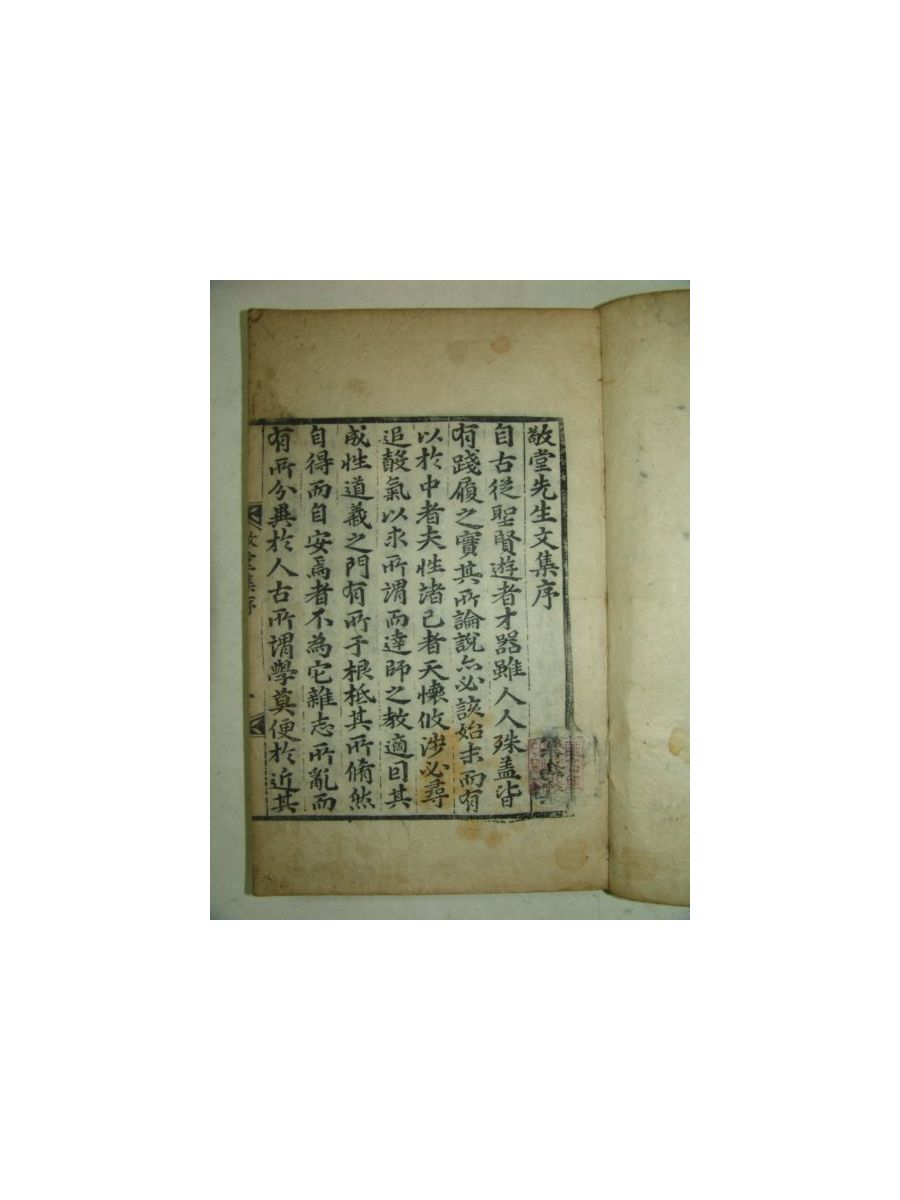 敬堂先生文集序
自古從聖賢遊者才器雖人人殊盖皆
有踐履之實其所論說亦必該始末而有
以於中者夫性諸己者天懷攸涉必尋
追聲氣以求所謂而達師之教適曰其
成性道義之門有所于根柢其所脩然
自得而自安焉者不為它雜志所亂而
有所分異於人古所謂學莫便於近其
敬堂集序